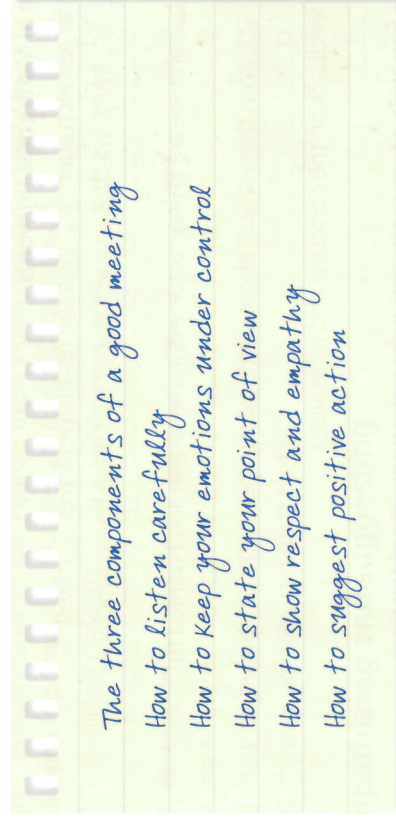 The three components of a good meeting
How to listen carefully
How to keep your emotions under control
How to state your point of view
How to show respect and empathy
How to suggest positive action